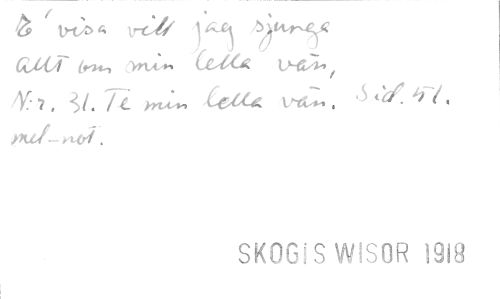 E' visa vill jag sjunga
allt om min lella vän,
N:r. 31. Te min lella vän. Sid. 51.
mel-not.
SKOGIS WISOR 1918